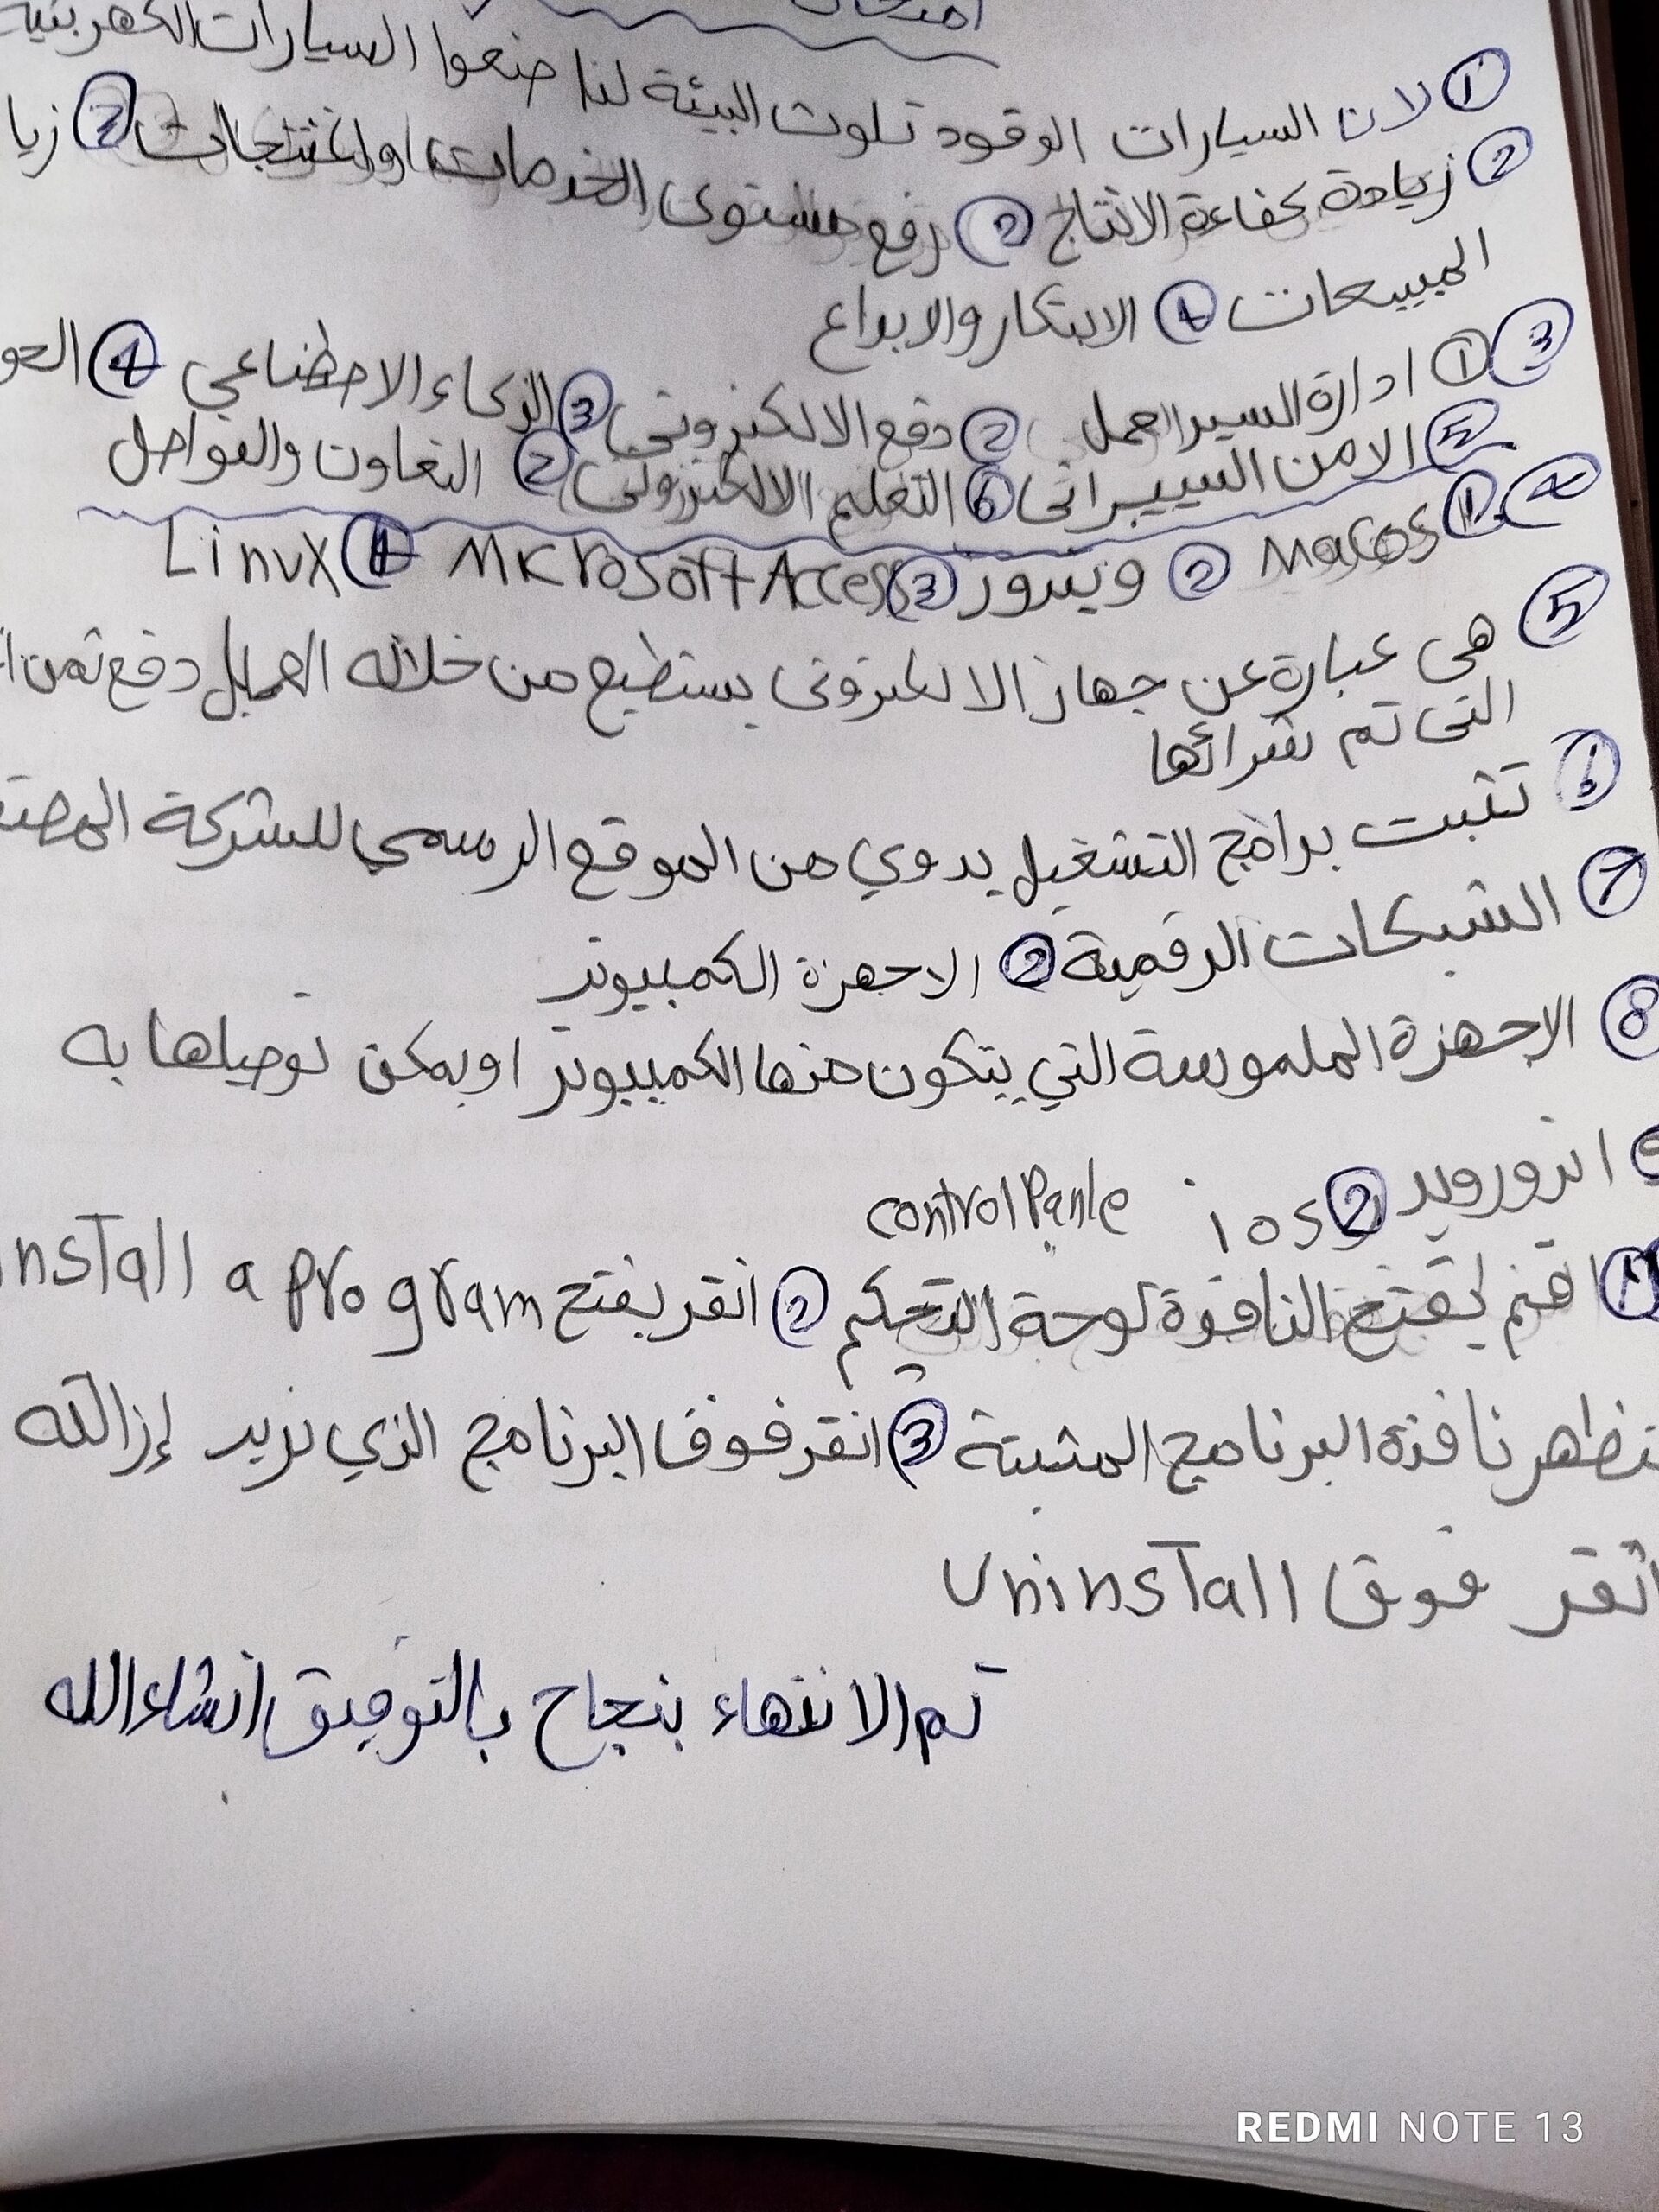 امتحان
① لان السيارات الوقود تلوث البيئة لذا صنعوا السيارات الكهربئية
② زيادة كفاءة الانتاج ② رفع مستوى الخدمات او المنتجات ③ زيا
المبيعات ④ الابتكار والابداع
③ ① ادارة السير العمل ② دفع الالكتروني ③ الذكاء الاصطناعي ④ الحو
⑤ الامن السيبراني ⑥ التعليم الالكتروني ② التعاون والتواصل
④ ① MacOS ② ويندوز ③ MicrosoftAccess ④ Linux
⑤ هي عبارة عن جهاز الالكتروني يستطيع من خلاله العميل دفع ثمن
التي تم شرائها
⑥ تثبت برامج التشغيل يدوي من الموقع الرسمي للشركة المصنع
⑦ الشبكات الرقمية ② الاجهزة الكمبيوتر
⑧ الاجهزة الملموسة التي يتكون منها الكمبيوتر او يمكن توصيلها به
9 اندرويد ② ios
control Panle
قم بفتح النافذة لوحة التحكم ② انقر بفتح nstall a program
تظهر نافذة البرنامج المثبتة ③ انقر فوق البرنامج الذي نريد إزالته
انقر فوق Uninstall
تم الانتهاء بنجاح بالتوفيق انشاءالله
REDMI NOTE 13